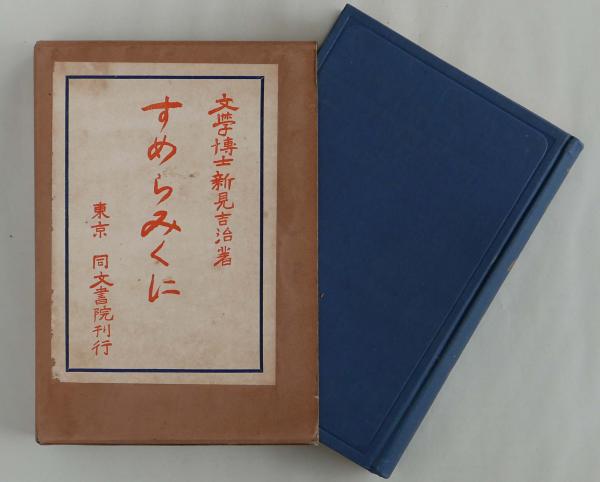 文學博士新見吉治著
すめらみくに
東京 同文書院刊行